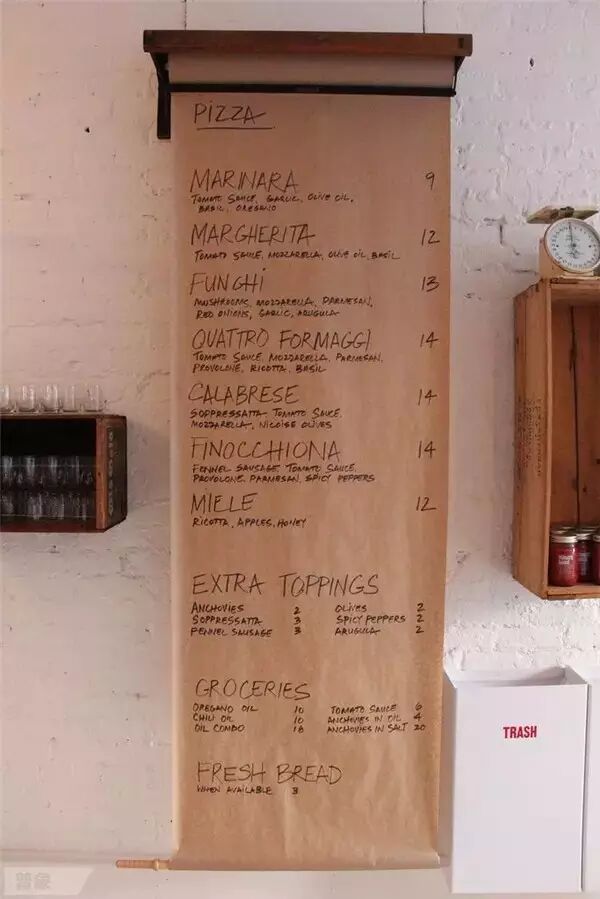 PIZZA
MARINARA 9
TOMATO SAUCE, GARLIC, OLIVE OIL,
BASIL, OREGANO
MARGHERITA 12
TOMATO SAUCE, MOZZARELLA, OLIVE OIL, BASIL
FUNGHI 13
MUSHROOMS, MOZZARELLA, PARMESAN,
RED ONIONS, GARLIC, ARUGULA
QUATTRO FORMAGGI 14
TOMATO SAUCE, MOZZARELLA, PARMESAN,
PROVOLONE, RICOTTA, BASIL
CALABRESE 14
SOPPRESSATTA TOMATO SAUCE,
MOZZARELLA, NICOISE OLIVES
FINOCCHIONA 14
FENNEL SAUSAGE, TOMATO SAUCE,
PROVOLONE, PARMESAN, SPICY PEPPERS
MIELE 12
RICOTTA, APPLES, HONEY
EXTRA TOPPINGS
ANCHOVIES 2 OLIVES 2
SOPPRESSATTA 3 SPICY PEPPERS 2
FENNEL SAUSAGE 3 ARUGULA 2
GROCERIES
OREGANO OIL 10 TOMATO SAUCE 6
CHILI OIL 10 ANCHOVIES IN OIL 4
OIL COMBO 18 ANCHOVIES IN SALT 20
FRESH BREAD
WHEN AVAILABLE 3
TRASH
普象